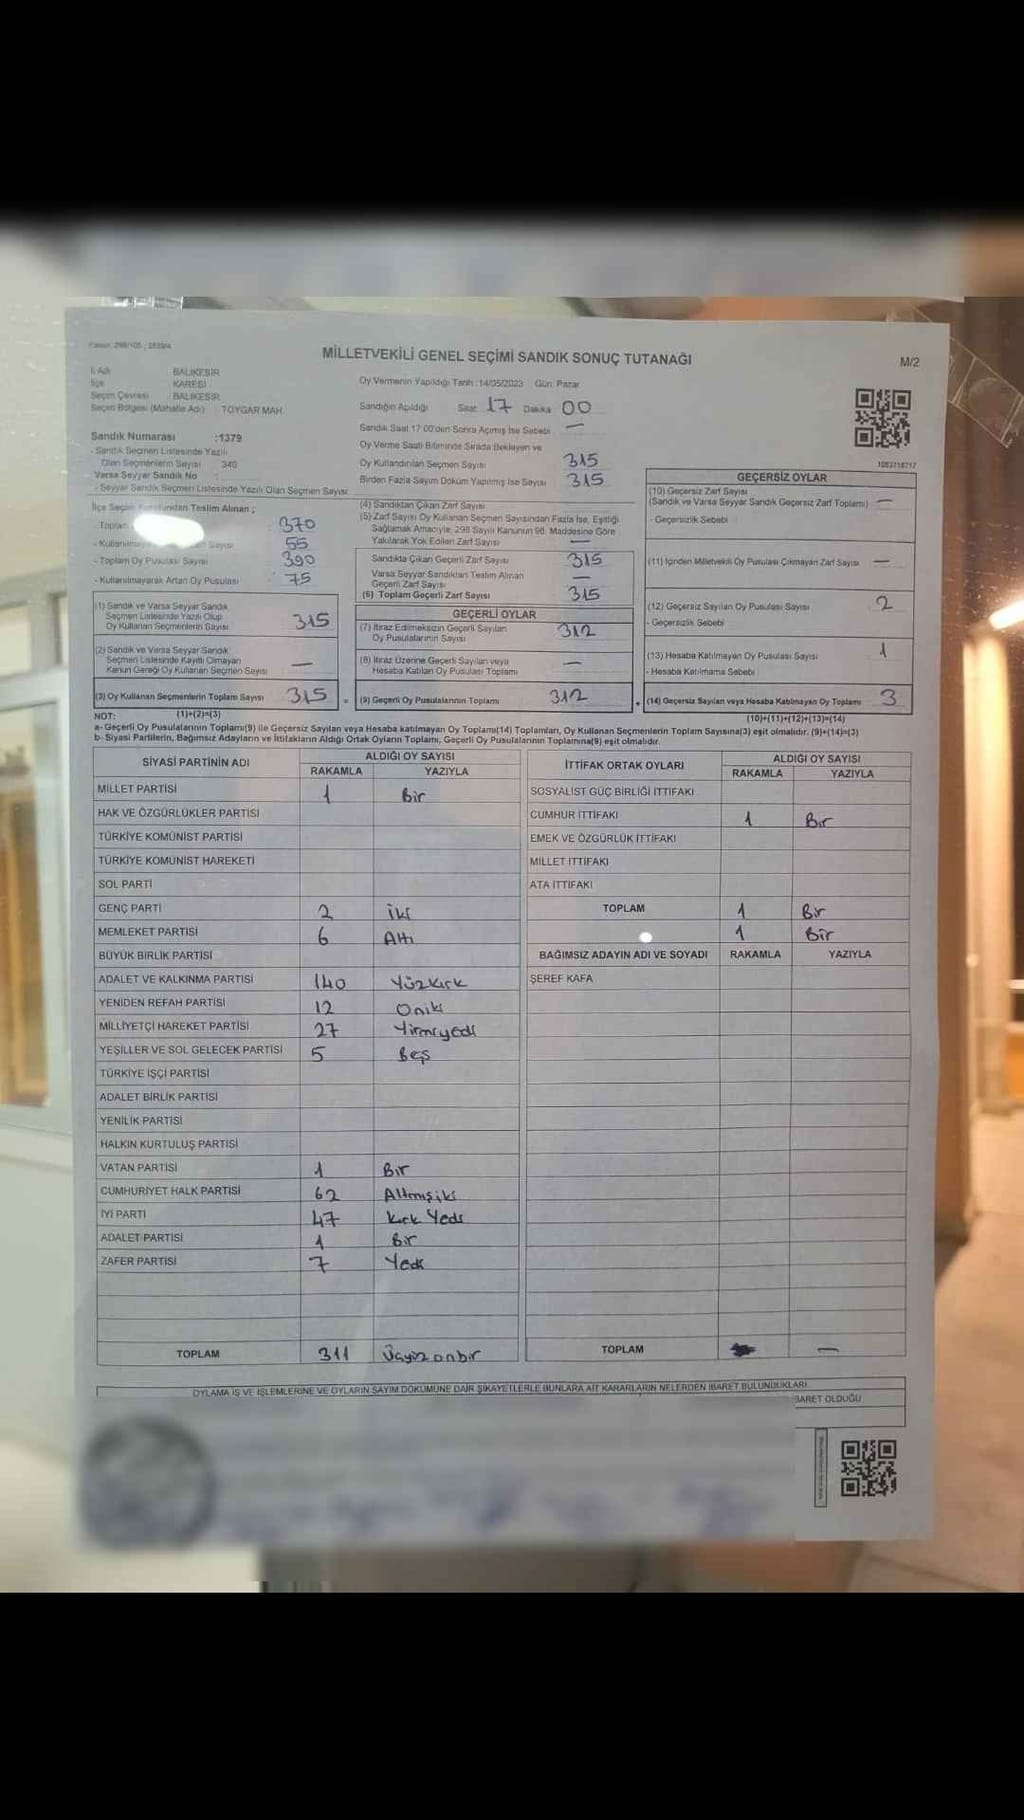 MİLLETVEKİLİ GENEL SEÇİMİ SANDIK SONUÇ TUTANAĞI
M/2
İl Adı BALIKESİR
İlçe KARESİ
Seçim Çevresi BALIKESİR
Seçim Bölgesi (Mahalle Adı) TOYGAR MAH.
Oy Vermenin Yapıldığı Tarih : 14/05/2023 Gün: Pazar
Sandığın Açıldığı Saat 17 Dakika 00
Sandık Saat 17:00'den Sonra Açılmış İse Sebebi —
Oy Verme Saati Bitiminde Sırada Bekleyen ve
Oy Kullandırılan Seçmen Sayısı 315
Birden Fazla Sayım Döküm Yapılmış İse Sayısı 315
Sandık Numarası :1379
- Sandık Seçmen Listesinde Yazılı
Olan Seçmenlerin Sayısı 340
Varsa Seyyar Sandık No
- Seyyar Sandık Seçmen Listesinde Yazılı Olan Seçmen Sayısı
İlçe Seçim Teslim Alınan ;
- Toplam 370
Sayısı 55
- Toplam Oy Pusulası Sayısı 390
- Kullanılmayarak Artan Oy Pusulası : 75
(1) Sandık ve Varsa Seyyar Sandık
Seçmen Listesinde Yazılı Olup
Oy Kullanan Seçmenlerin Sayısı 315
(2) Sandık ve Varsa Seyyar Sandık
Seçmen Listesinde Kayıtlı Olmayan
Kanun Gereği Oy Kullanan Seçmen Sayısı —
(3) Oy Kullanan Seçmenlerin Toplam Sayısı 315
(1)+(2)=(3)
(4) Sandıktan Çıkan Zarf Sayısı
(5) Zarf Sayısı Oy Kullanan Seçmen Sayısından Fazla İse, Eşitliği
Sağlamak Amacıyla, 298 Sayılı Kanunun 98. Maddesine Göre
Yakılarak Yok Edilen Zarf Sayısı —
Sandıkta Çıkan Geçerli Zarf Sayısı 315
Varsa Seyyar Sandıktan Teslim Alınan
Geçerli Zarf Sayısı —
(6) Toplam Geçerli Zarf Sayısı 315
GEÇERLİ OYLAR
(7) İtiraz Edilmeksizin Geçerli Sayılan
Oy Pusulalarının Sayısı 312
(8) İtiraz Üzerine Geçerli Sayılan veya
Hesaba Katılan Oy Pusulası Toplamı —
(9) Geçerli Oy Pusulalarının Toplamı 312
1083718717
GEÇERSİZ OYLAR
(10) Geçersiz Zarf Sayısı
(Sandık ve Varsa Seyyar Sandık Geçersiz Zarf Toplamı) —
- Geçersizlik Sebebi
(11) İçinden Milletvekili Oy Pusulası Çıkmayan Zarf Sayısı —
(12) Geçersiz Sayılan Oy Pusulası Sayısı 2
- Geçersizlik Sebebi
(13) Hesaba Katılmayan Oy Pusulası Sayısı 1
- Hesaba Katılmama Sebebi
(14) Geçersiz Sayılan veya Hesaba Katılmayan Oy Toplamı 3
(10)+(11)+(12)+(13)=(14)
NOT:
a- Geçerli Oy Pusulalarının Toplamı(9) ile Geçersiz Sayılan veya Hesaba katılmayan Oy Toplamı(14) Toplamları, Oy Kullanan Seçmenlerin Toplam Sayısına(3) eşit olmalıdır. (9)+(14)=(3)
b- Siyasi Partilerin, Bağımsız Adayların ve İttifakların Aldığı Ortak Oyların Toplamı, Geçerli Oy Pusulalarının Toplamına(9) eşit olmalıdır.
SİYASİ PARTİNİN ADI ALDIĞI OY SAYISI
RAKAMLA YAZIYLA
MİLLET PARTİSİ 1 Bir
HAK VE ÖZGÜRLÜKLER PARTİSİ
TÜRKİYE KOMÜNİST PARTİSİ
TÜRKİYE KOMÜNİST HAREKETİ
SOL PARTİ
GENÇ PARTİ 2 iki
MEMLEKET PARTİSİ 6 Altı
BÜYÜK BİRLİK PARTİSİ
ADALET VE KALKINMA PARTİSİ 140 Yüzkırk
YENİDEN REFAH PARTİSİ 12 Oniki
MİLLİYETÇİ HAREKET PARTİSİ 27 Yirmiyedi
YEŞİLLER VE SOL GELECEK PARTİSİ 5 Beş
TÜRKİYE İŞÇİ PARTİSİ
ADALET BİRLİK PARTİSİ
YENİLİK PARTİSİ
HALKIN KURTULUŞ PARTİSİ
VATAN PARTİSİ 1 Bir
CUMHURİYET HALK PARTİSİ 62 Altmışiki
İYİ PARTİ 47 Kırk Yedi
ADALET PARTİSİ 1 Bir
ZAFER PARTİSİ 7 Yedi
TOPLAM 311 Üçyüzonbir
İTTİFAK ORTAK OYLARI ALDIĞI OY SAYISI
RAKAMLA YAZIYLA
SOSYALİST GÜÇ BİRLİĞİ İTTİFAKI
CUMHUR İTTİFAKI 1 Bir
EMEK VE ÖZGÜRLÜK İTTİFAKI
MİLLET İTTİFAKI
ATA İTTİFAKI
TOPLAM 1 Bir
1 Bir
BAĞIMSIZ ADAYIN ADI VE SOYADI RAKAMLA YAZIYLA
ŞEREF KAFA
TOPLAM —
OYLAMA İŞ VE İŞLEMLERİNE VE OYLARIN SAYIM DÖKÜMÜNE DAİR ŞİKAYETLERLE BUNLARA AİT KARARLARIN NELERDEN İBARET BULUNDUKLARI
BARET OLDUĞU